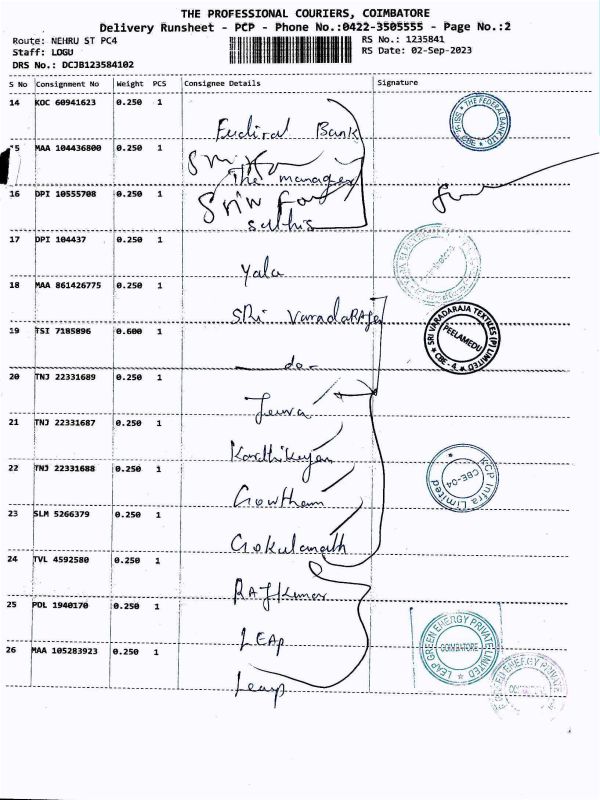 THE PROFESSIONAL COURIERS, COIMBATORE
Delivery Runsheet - PCP - Phone No.:0422-3505555 - Page No.:2
Route: NEHRU ST PC4 RS No.: 1235841
Staff: LOGU RS Date: 02-Sep-2023
DRS No.: DCJB123584102
S No Consignment No Weight PCS Consignee Details Signature
14 KOC 60941623 0.250 1
Fediral Bank
THE FEDERAL BANK LTD CBE
15 MAA 104436800 0.250 1
The manager
16 DPI 10555708 0.250 1
Sriw
sathis
17 DPI 104437 0.250 1
Yala
18 MAA 861426775 0.250 1
SRi VaradaRAja
SRI VARADARAJA TEXTILES (P) LIMITED
PEELAMEDU
CBE - 4.
19 TSI 7185896 0.600 1
-do-
20 TNJ 22331689 0.250 1
21 TNJ 22331687 0.250 1
Karthikeyan
22 TNJ 22331688 0.250 1
Gowtham
KCP Infra Limited
CBE-04
23 SLM 5266379 0.250 1
Gokulanath
24 TVL 4592580 0.250 1
RAJKumar
25 POL 1940170 0.250 1
LEAp
LEAP GREEN ENERGY PRIVATE LIMITED
COIMBATORE
26 MAA 105283923 0.250 1
Leap
GREEN ENERGY PRIVATE